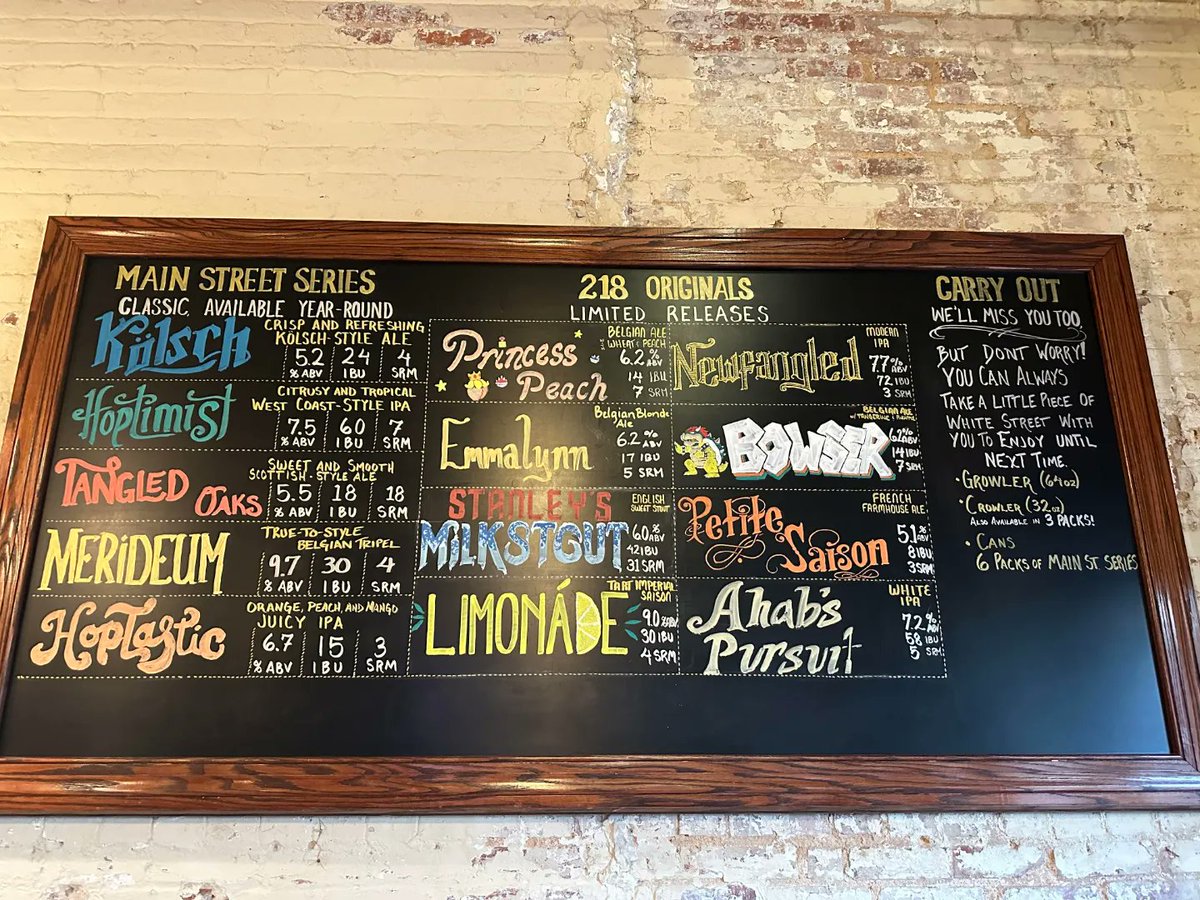 MAIN STREET SERIES
CLASSIC, AVAILABLE YEAR-ROUND
Kölsch
CRISP AND REFRESHING
KÖLSCH-STYLE ALE
5.2 24 4
% ABV IBU SRM
Hoptimist
CITRUSY AND TROPICAL
WEST COAST-STYLE IPA
7.5 60 7
% ABV IBU SRM
TANGLED OAKS
SWEET AND SMOOTH
SCOTTISH-STYLE ALE
5.5 18 18
% ABV IBU SRM
MERIDEUM
TRUE-TO-STYLE
BELGIAN TRIPEL
9.7 30 4
% ABV IBU SRM
HopTastic
ORANGE, PEACH, AND MANGO
JUICY IPA
6.7 15 3
% ABV IBU SRM
218 ORIGINALS
LIMITED RELEASES
Princess
Peach
BELGIAN ALE
W/ WHEAT & PEACH
6.2 % ABV
14 IBU
7 SRM
Emmalynn
Belgian Blonde
Ale
6.2 % ABV
17 IBU
5 SRM
STANLEY'S
MILKSTOUT
ENGLISH
SWEET STOUT
6.0 % ABV
42 IBU
31 SRM
LIMONÁDE
TART IMPERIAL
SAISON
9.0 % ABV
30 IBU
4 SRM
Newfangled
MODERN
IPA
7.7 % ABV
72 IBU
3 SRM
BOWSER
BELGIAN ALE
W/ TANGERINE &
% ABV
14 IBU
7 SRM
Petite
Saison
FRENCH
FARMHOUSE ALE
5.1 % ABV
8 IBU
3 SRM
Ahab's
Pursuit
WHITE
IPA
7.2 % ABV
58 IBU
5 SRM
CARRY OUT
WE'LL MISS YOU TOO
BUT DONT WORRY!
YOU CAN ALWAYS
TAKE A LITTLE PIECE OF
WHITE STREET WITH
YOU TO ENJOY UNTIL
NEXT TIME.
• GROWLER (64oz)
• CROWLER (32oz)
ALSO AVAILABLE IN 3 PACKS!
• CANS
6 PACKS OF MAIN ST SERIES